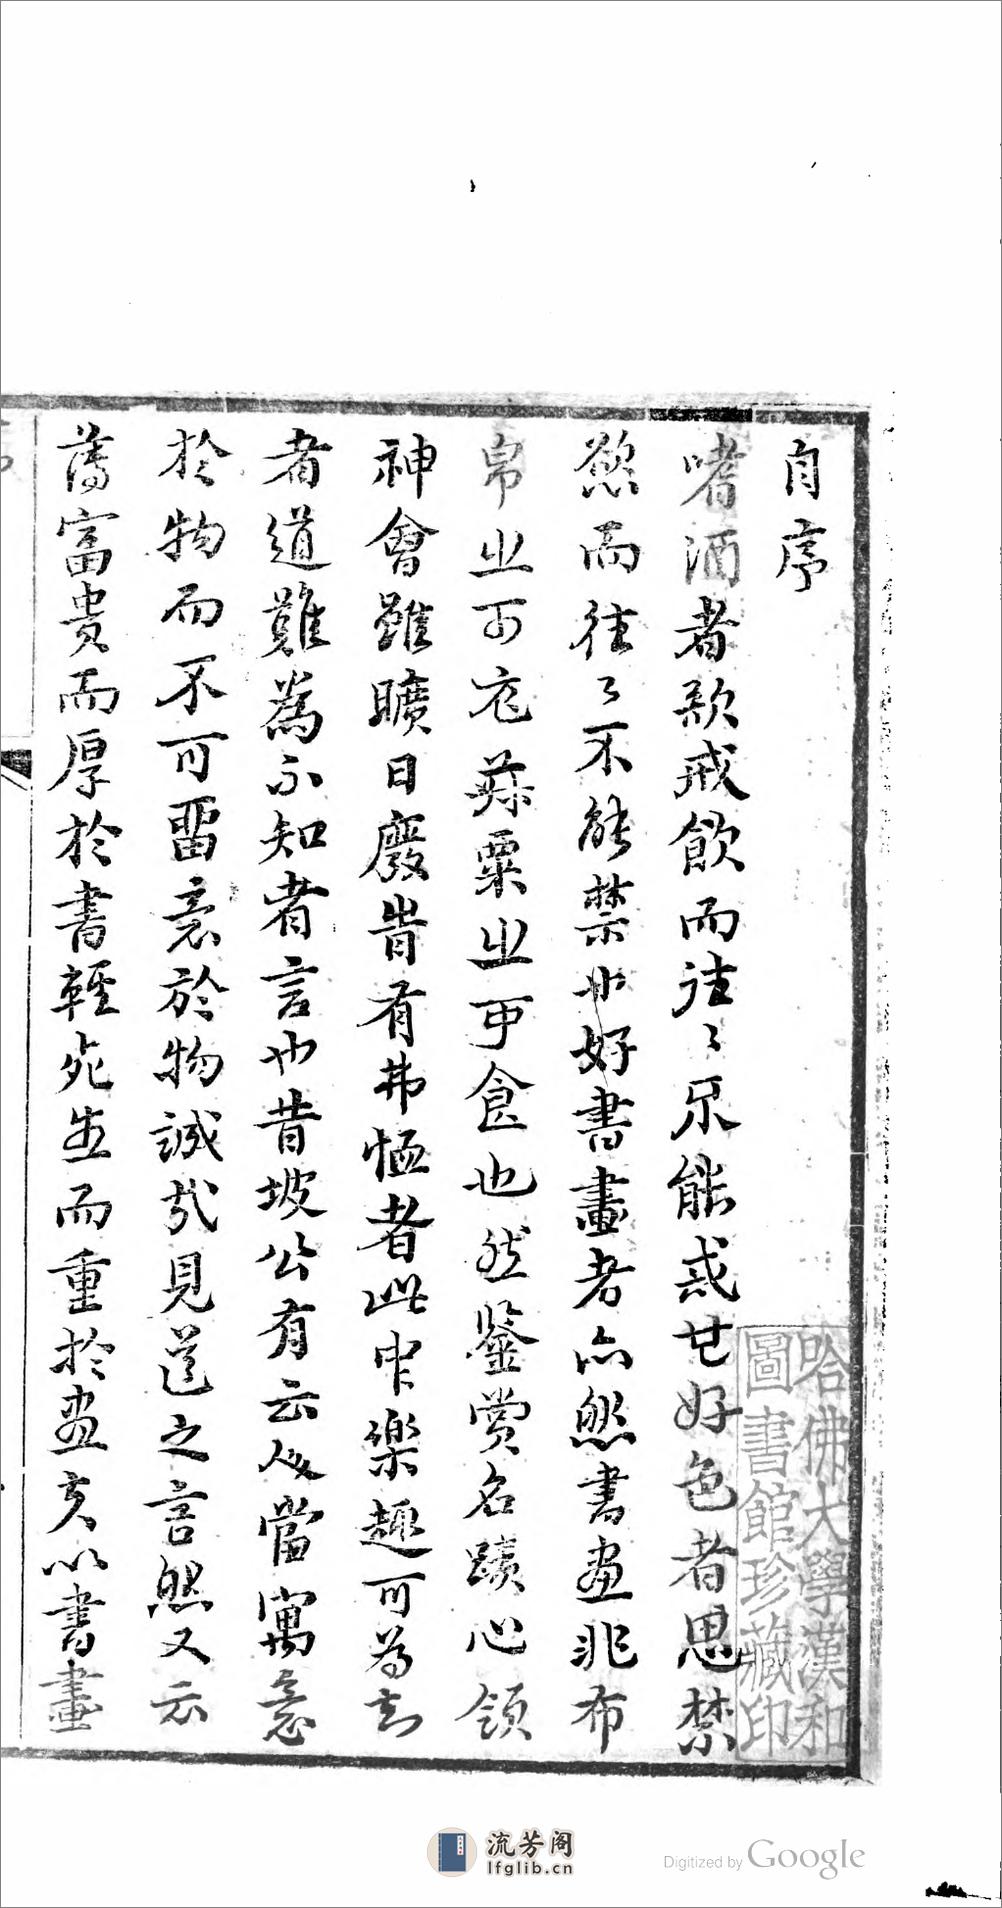 自序
嗜酒者欲戒飲而往々不能或也好色者思禁
慾而往々不能禁也好書畫者亦然書畫非布
帛之可衣菽粟之可食也然鑒賞名蹟心領
神會雖曠日廢時有弗恤者此中樂趣可為知
者道難為不知者言也昔坡公有云人當寓意
於物而不可留意於物誠哉見道之言然又云
薄富貴而厚於書輕死生而重於畫夫以書畫
哈佛大學漢和
圖書館珍藏印
流芳阁
lfglib.cn
Digitized by Google